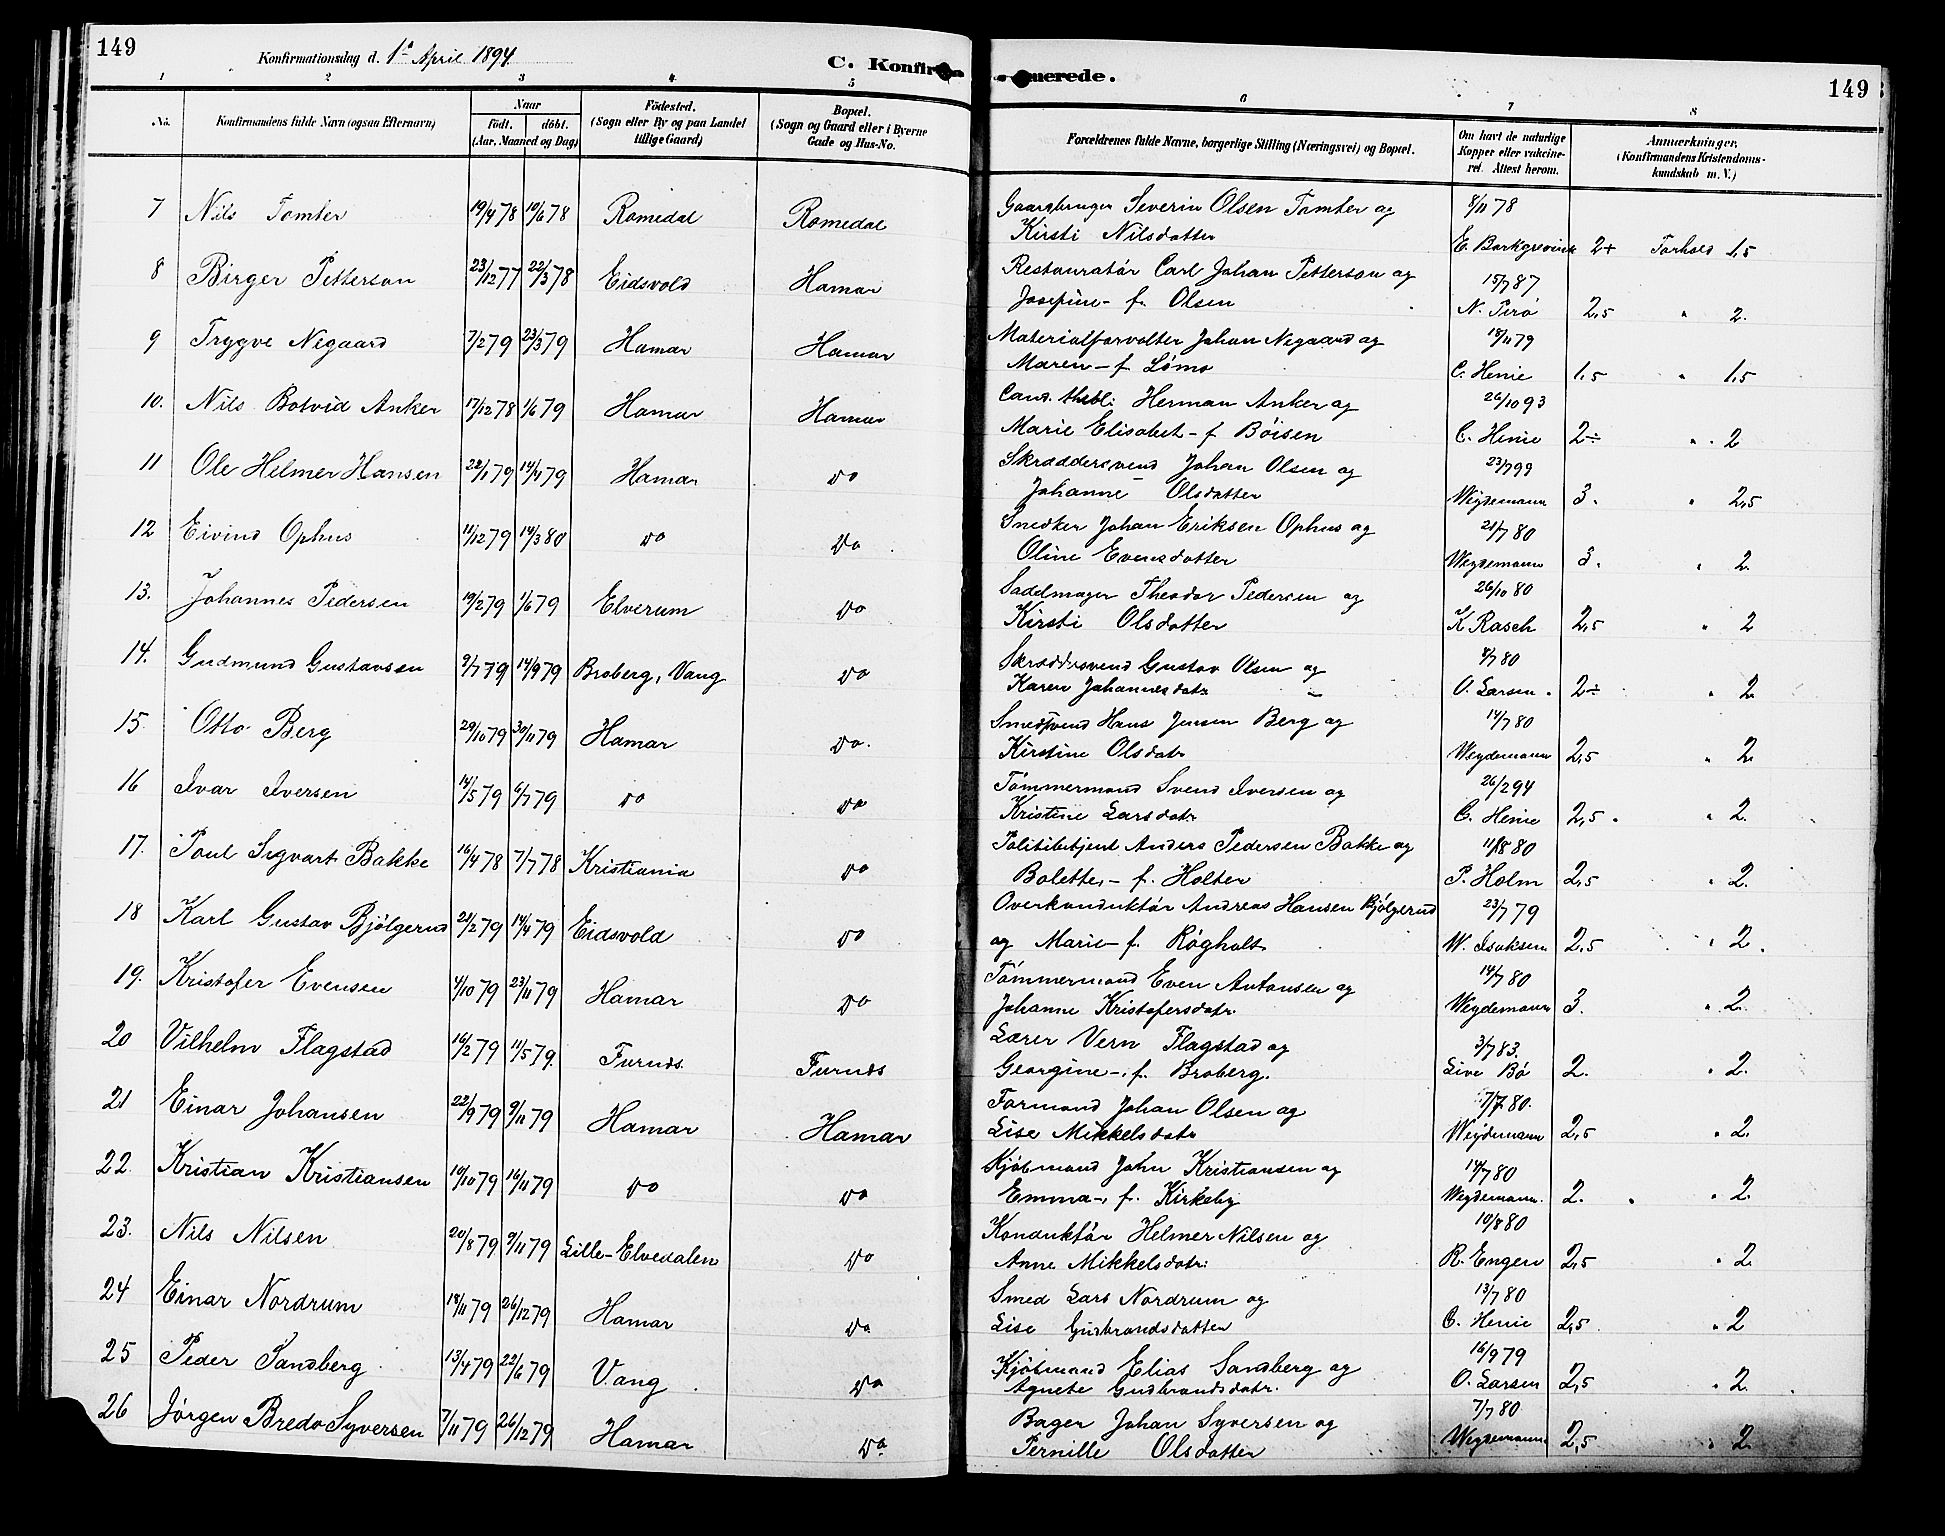 149
Konfirmationsdag d. 1ª April 1894
C. Konfir
merede.
149
1 2 3 4 5 6 7 8
No. Konfirmandens fulde Navn (ogsaa Efternavn) Naar födt. döbt. (Aar, Maaned og Dag) Födested. (Sogn eller By og paa Landet tillige Gaard) Bopæl. (Sogn og Gaard eller i Byerne Gade og Hus-No. Forældrenes fulde Navne, borgerlige Stilling (Næringsvei) og Bopæl. Om havt de naturlige Kopper eller vakcineret. Attest herom. Anmærkninger, (Konfirmandens Kristendomskundskab m. V.)
7 Nils Tomter 19/4 78 10/6 78 Romedal Romedal Gaardbruger Severin Olsen Tomter og 8/11 78
Kirsti Nilsdatter E. Borkgrevink 2+ Forhold 1,5
8 Birger Petterson 23/12 77 22/3 78 Eidsvold Hamar Restauratør Carl Johan Petterson og 15/7 87
Josefine - f. Olsen N. Perö 2,5 " 2.
9 Trygve Negaard 7/2 79 23/3 79 Hamar Hamar Materialforvalter Johan Negaard og 18/11 79
Maren - f. Lömo C. Henie 1,5 " 1,5
10. Nils Botvid Anker 17/12 78 1/6 79 Hamar Hamar Cand. theol: Herman Anker og 26/10 93
Marie Elisabet - f Böisen C. Henie 2÷ " 2
11 Ole Helmer Hansen 22/1 79 14/4 79 Hamar do Skræddersvend Johan Olsen og 23/7 99
Johanne Olsdatter Weydemann 3. " 2,5
12 Eivind Ophus 11/12 79 14/3 80 do do Snedker Johan Eriksen Ophus og 21/7 80
Oline Evensdatter Weydemann 3. " 2.
13. Johannes Pedersen 19/2 79 1/6 79 Elverum do Sadelmager Theodor Pedersen og 26/10 80
Kirsti Olsdatter K Rasch 2,5 " 2
14. Gudmund Gustavsen 9/7 79 14/9 79 Broberg, Vang do Skræddersvend Gustav Olsen og 8/7 80
Karen Johannesdatr O. Larsen. 2÷ " 2
15. Otto Berg 29/10 79 30/11 79 Hamar do. Smedsvend Hans Jensen Berg og 14/7 80
Kirstine Olsdatr Weydemann 2,5 " 2
16 Ivar Iversen 14/5 79 6/7 79 do do Tömmermand Svend Iversen og 26/2 94
Kristine Larsdatr C. Henie 2,5. " 2.
17. Poul Sigvart Bakke 16/4 78 7/7 78 Kristiania do Politibetjent Anders Pedersen Bakke og 11/8 80
Bolette, - f. Holter P. Holm 2,5 " 2.
18 Karl Gustav Bjölgerud 21/2 79 14/4 79 Eidsvold do Overkonduktör Andreas Hansen Bjölgerud 23/7 79
og Marie - f. Rögholt W. Isaksen 2,5 " 2.
19. Kristofer Evensen 4/10 79 23/11 79 Hamar do Tömmermand Even Antonsen og 14/7 80
Johanne Kristofersdatr. Weydemann 3. " 2.
20 Vilhelm Flagstad 16/2 79 11/5 79. Furnæs. Furnæs Lærer Vern Flagstad og 3/7 83.
Georgine -, f. Broberg. Live Bö 2. " 2.
21 Einar Johansen 22/9 79 9/11 79 Hamar Hamar Formand Johan Olsen og 7/7 80.
Lise Mikkelsdatr Weydemann 2,5 " 2.
22. Kristian Kristiansen 10/10 79 16/11 79 do do Kjöbmand John Kristiansen og 14/7 80
Emma -, f. Kirkeby Weydemann. 2. " 2.
23. Nils Nilsen 20/8 79 9/11 79 Lille-Elvedalen do Konduktör Helmer Nilsen og 10/8 80
Anne Mikkelsdatr: R. Engen 2,5 " 2
24 Einar Nordrum 18/11 79 26/12 79 Hamar do Smed Lars Nordrum og 13/7 80
Lise Gudbrandsdatter C. Henie 2,5 " 2
25 Peder Sandberg 13/4 79 22/6 79 Vang do Kjöbmand Elias Sandberg og 16/9 79
Agnete Gudbrandsdatr. O. Larsen 2,5 " 2.
26 Jörgen Bredo Syversen 7/11 79 26/12 79 Hamar do Bager Johan Syversen og 7/7 80
Pernille Olsdatter Weydemann. 2,5 " 2